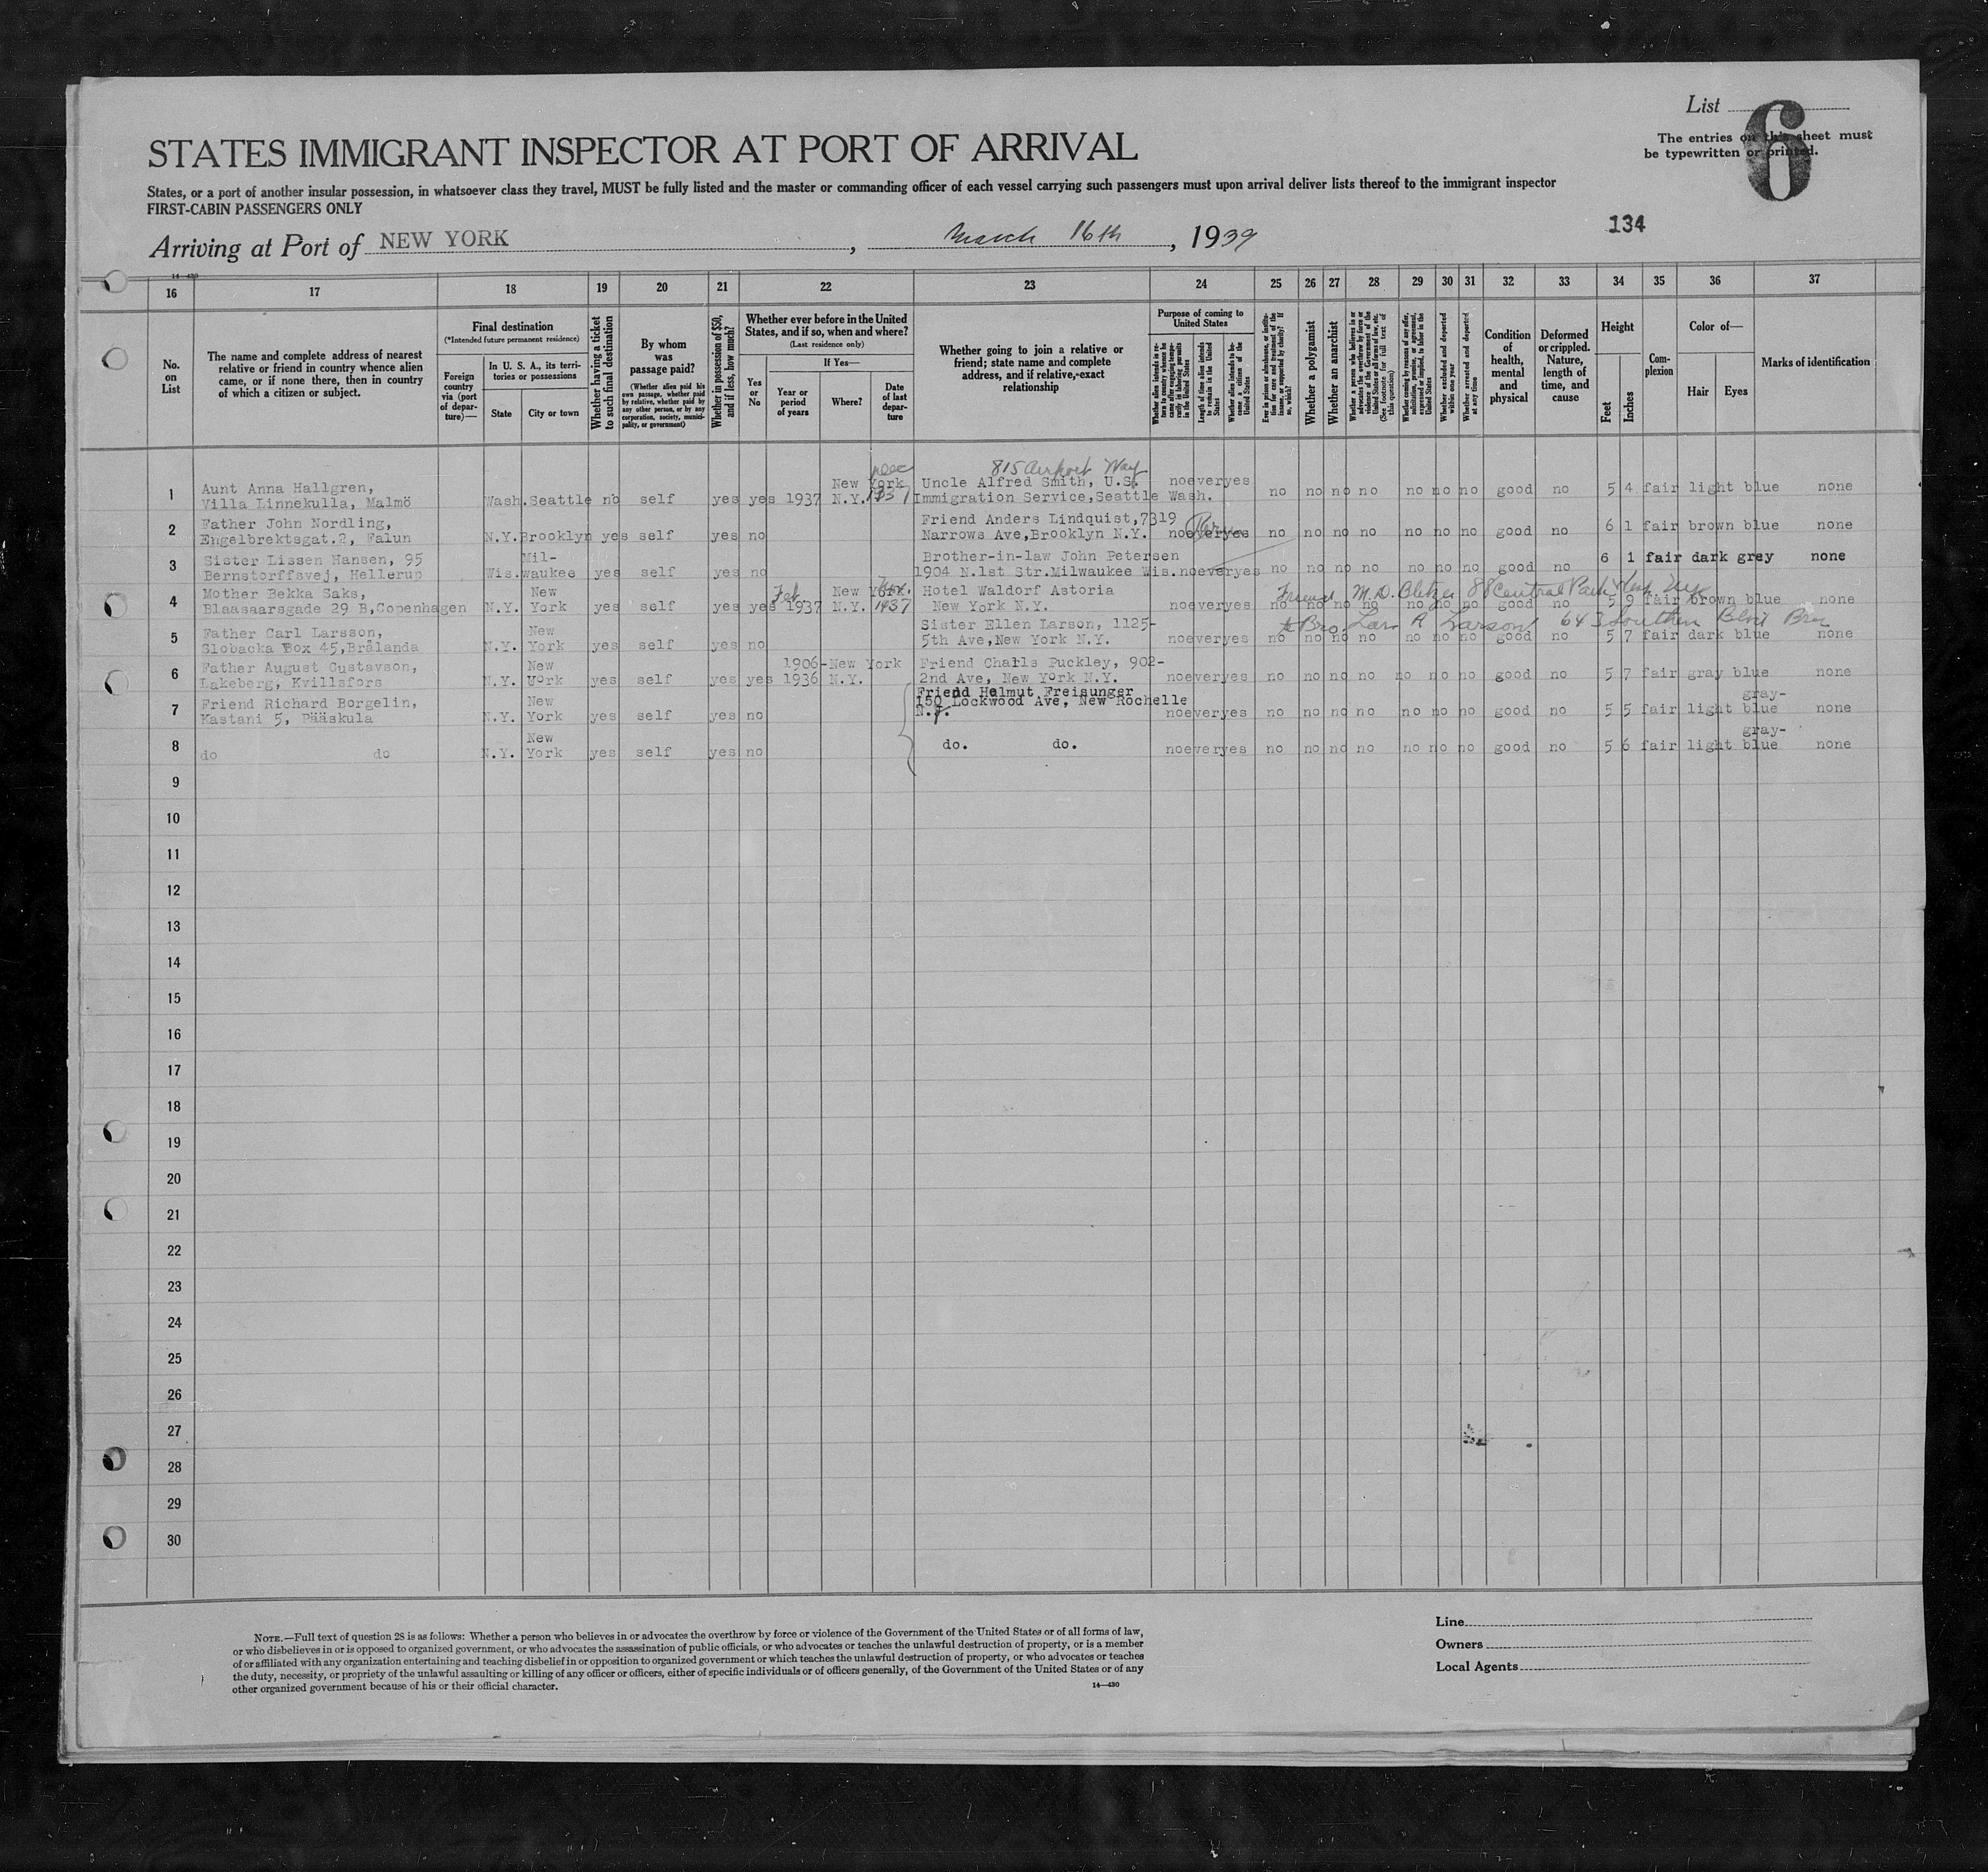 List 6
The entries on this sheet must
be typewritten or printed.
STATES IMMIGRANT INSPECTOR AT PORT OF ARRIVAL
States, or a port of another insular possession, in whatsoever class they travel, MUST be fully listed and the master or commanding officer of each vessel carrying such passengers must upon arrival deliver lists thereof to the immigrant inspector
FIRST-CABIN PASSENGERS ONLY
134
Arriving at Port of NEW YORK, March 16th, 1939
14—430
16 17 18 19 20 21 22 23 24 25 26 27 28 29 30 31 32 33 34 35 36 37
No. on List
The name and complete address of nearest
relative or friend in country whence alien
came, or if none there, then in country
of which a citizen or subject.
Final destination
(*Intended future permanent residence)
Foreign country via (port of departure)—
In U. S. A., its territories or possessions
State
City or town
Whether having a ticket to such final destination
By whom was passage paid?
(Whether alien paid his own passage, whether paid by relative, whether paid by any other person, or by any corporation, society, municipality, or government)
Whether in possession of $50, and if less, how much?
Whether ever before in the United
States, and if so, when and where?
(Last residence only)
Yes or No
If Yes—
Year or period of years
Where?
Date of last departure
Whether going to join a relative or
friend; state name and complete
address, and if relative, exact
relationship
Purpose of coming to United States
Whether alien intends to return to country whence he came after engaging temporarily in laboring pursuits in the United States
Length of time alien intends to remain in the United States
Whether alien intends to become a citizen of the United States
Ever in prison or almshouse, or institution for care and treatment of the insane, or supported by charity? If so, which?
Whether a polygamist
Whether an anarchist
Whether a person who believes in or advocates the overthrow by force or violence of the Government of the United States or all forms of law, etc. (See footnote for full text of this question)
Whether coming by reason of any offer, solicitation, promise, or agreement, expressed or implied, to labor in the United States
Whether excluded and deported within one year
Whether arrested and deported at any time
Condition of health, mental and physical
Deformed or crippled. Nature, length of time, and cause
Height
Feet
Inches
Complexion
Color of—
Hair
Eyes
Marks of identification
815 Airport Way
Dec
1 Aunt Anna Hallgren, New York Uncle Alfred Smith, U.S.
Villa Linnekulla, Malmö Wash. Seattle no self yes yes 1937 N.Y. Immigration Service, Seattle Wash. no ever yes no no no no no no no good no 5 4 fair light blue none
2 Father John Nordling, Friend Anders Lindquist, 7319
Engelbrektsgat.2, Falun N.Y. Brooklyn yes self yes no Narrows Ave, Brooklyn N.Y. no ever yes no no no no no no no good no 6 1 fair brown blue none
3 Sister Lissen Hansen, 95 Mil- Brother-in-law John Petersen
Bernstorffsvej, Hellerup Wis. waukee yes self yes no 1904 N.1st Str. Milwaukee Wis. no ever yes no no no no no no no good no 6 1 fair dark grey none
Friend M.D. 88 Central Park
4 Mother Bekka Saks, New Feb New York Hotel Waldorf Astoria
Blaasaarsgade 29 B, Copenhagen N.Y. York yes self yes yes 1937 N.Y. 1937 New York N.Y. no ever yes no no no no no no no good no 5 9 fair brown blue none
Bro Lars A Larson 643 Southern Blvd
5 Father Carl Larsson, New Sister Ellen Larson, 1125-
Slobacka Box 45, Brålanda N.Y. York yes self yes no 5th Ave, New York N.Y. no ever yes no no no no no no no good no 5 7 fair dark blue none
6 Father August Gustavson, New 1906- New York Friend Charls Puckley, 902-
Lakeberg, Kvillsfors N.Y. York yes self yes yes 1936 N.Y. 2nd Ave, New York N.Y. no ever yes no no no no no no no good no 5 7 fair gray blue none
7 Friend Richard Borgelin, New Friend Helmut Freisunger gray-
Kastani 5, Pääskula N.Y. York yes self yes no 150 Lockwood Ave, New Rochelle N.Y. no ever yes no no no no no no no good no 5 5 fair light blue none
8 New gray-
do do N.Y. York yes self yes no do. do. no ever yes no no no no no no no good no 5 6 fair light blue none
9
10
11
12
13
14
15
16
17
18
19
20
21
22
23
24
25
26
27
28
29
30
NOTE.—Full text of question 28 is as follows: Whether a person who believes in or advocates the overthrow by force or violence of the Government of the United States or of all forms of law,
or who disbelieves in or is opposed to organized government, or who advocates the assassination of public officials, or who advocates or teaches the unlawful destruction of property, or is a member
of or affiliated with any organization entertaining and teaching disbelief in or opposition to organized government or which teaches the unlawful destruction of property, or who advocates or teaches
the duty, necessity, or propriety of the unlawful assaulting or killing of any officer or officers, either of specific individuals or of officers generally, of the Government of the United States or of any
other organized government because of his or their official character.
14—430
Line
Owners
Local Agents